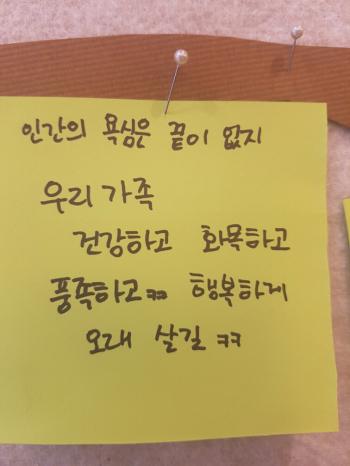 인간의 욕심은 끝이 없지
우리 가족
건강하고 화목하고
풍족하고ㅋㅋ 행복하게
오래 살길 ㅋㅋ